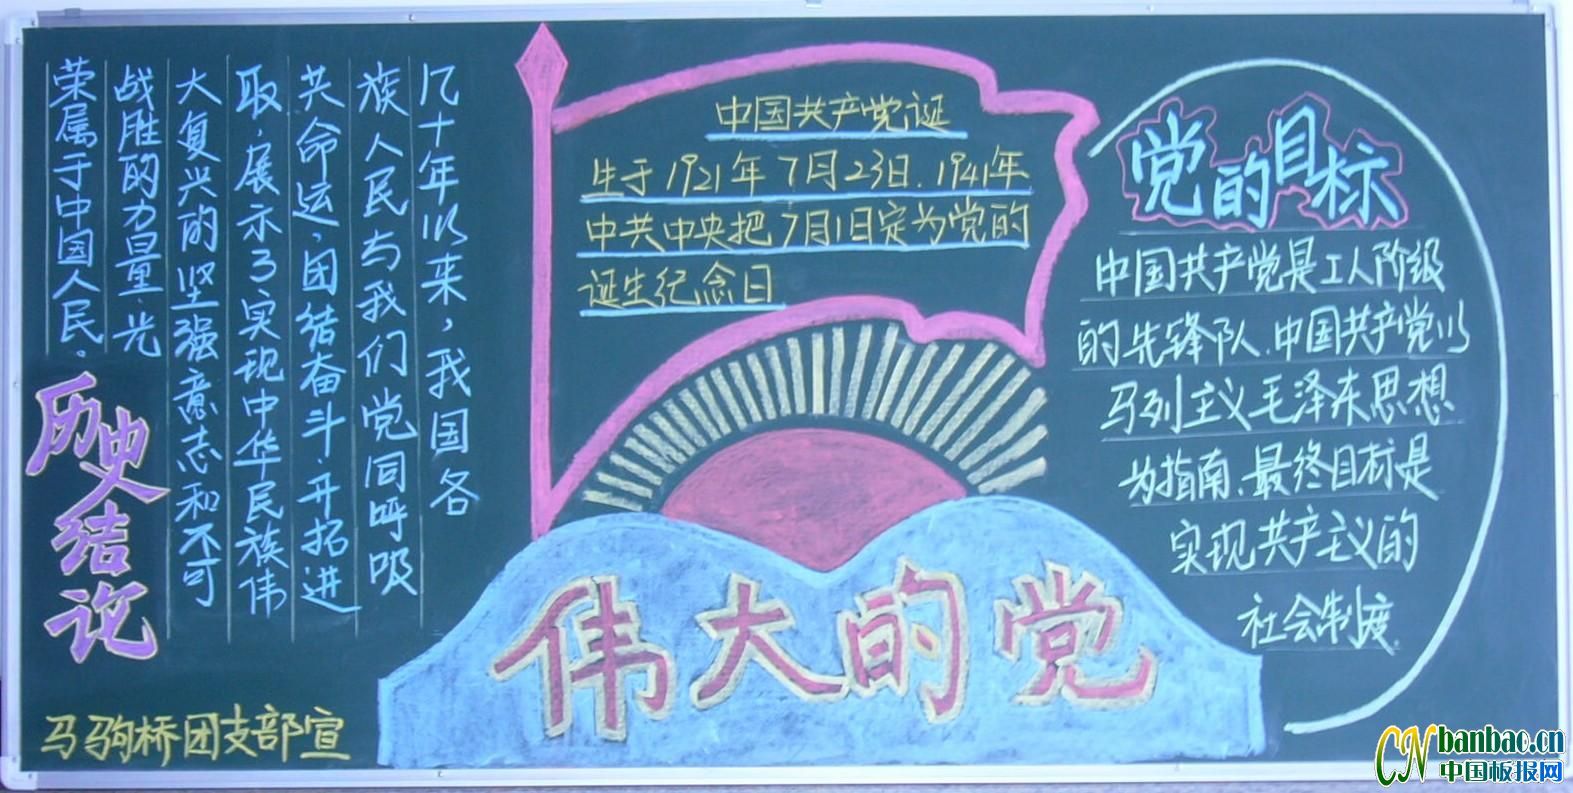 几十年以来，我国各
族人民与我们党同呼吸
共命运，团结奋斗，开拓进
取，展示了实现中华民族伟
大复兴的坚强意志和不可
战胜的力量，光
荣属于中国人民。
历史结论
马驹桥团支部宣
中国共产党诞
生于1921年7月23日.1941年
中共中央把7月1日定为党的
诞生纪念日
伟大的党
党的目标
中国共产党是工人阶级
的先锋队.中国共产党以
马列主义毛泽东思想
为指南、最终目标是
实现共产主义的
社会制度.
CN banbao.cn
中国板报网